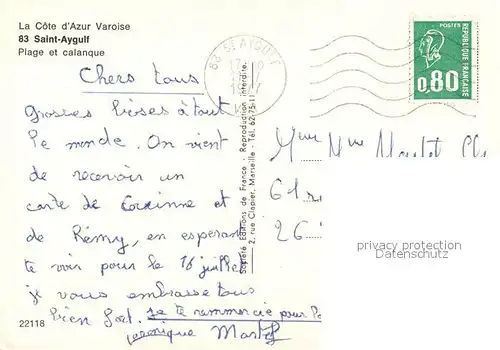 La Côte d'Azur Varoise
83 Saint-Aygulf
Plage et calanque
83 ST AYGULF
POSTES
RÉPUBLIQUE FRANÇAISE
0,80
Chers tous
Grosses bises à tout
le monde. On vient
de recevoir un
carte de Corinne et
de Rémy, en espérant
te voir pour le 16 juillet
je vous embrasse tous
bien fort. je te remercie pour
Véronique
22118
Société Éditions de France - Reproduction interdite.
2, rue Clapier, Marseille - Tél. 62-75-1
61
26
privacy protection
Datenschutz